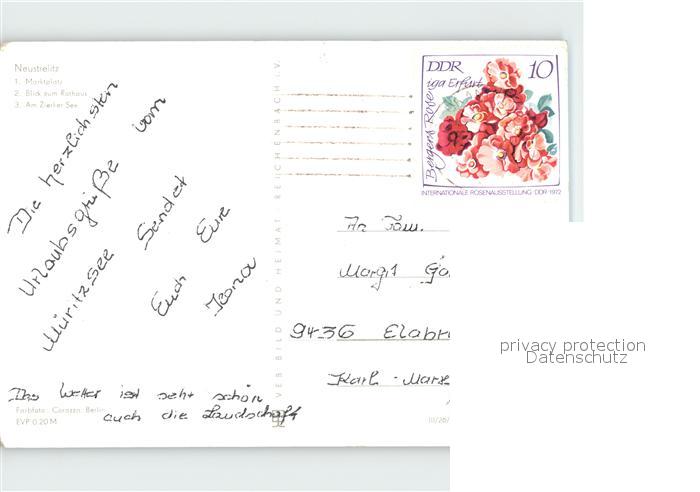 Neustrelitz
1. Marktplatz
2. Blick zum Rathaus
3. Am Zierker See
Die herzlichsten
Urlaubsgrüße vom
Müritzsee Sendet
Euch Eure
Ilona
Das Wetter ist sehr schön
auch die Landschaft
Farbfoto: Corazza, Berlin
EVP 0.20 M
VEB BILD UND HEIMAT REICHENBACH i. V.
DDR 10
iga Erfurt
Bergers Rose
INTERNATIONALE ROSENAUSSTELLUNG DDR 1972
An Fam.
Margit
9436
Karl-Marx
III/26/
privacy protection
Datenschutz